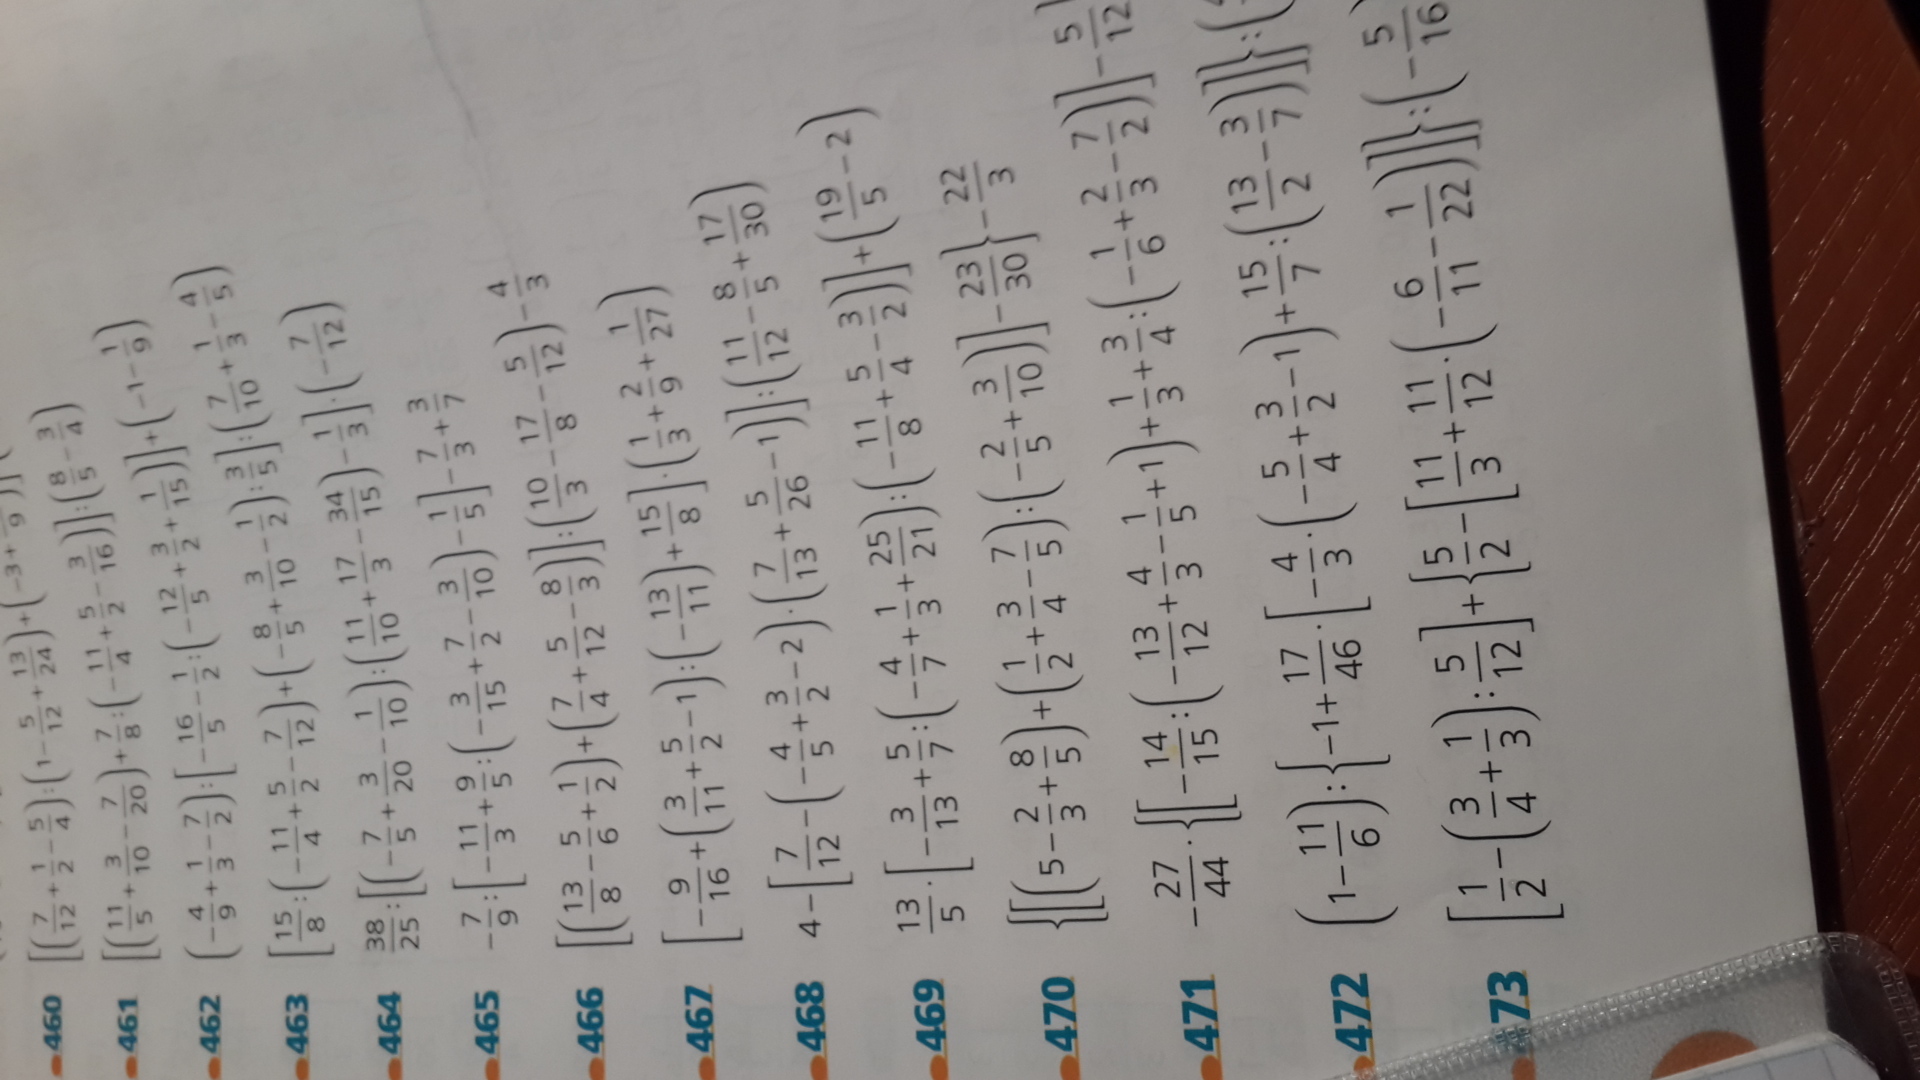 460 [(7/12 + 1/2 - 5/4) : (1 - 5/12 + 13/24) + (-3 + /9)]
461 [(11/5 + 3/10 - 7/20) + 7/8 : (-11/4 + 5/2 - 3/16)] : (8/5 - 3/4)
462 (-4/9 + 1/3 - 7/2) : [-16/5 - 1/2 : (-12/5 + 3/2 + 1/15)] + (-1 - 1/9)
463 [15/8 : (-11/4 + 5/2 - 7/12) + (-8/5 + 3/10 - 1/2) : 3/5] : (7/10 + 1/3 - 4/5)
464 38/25 : [(-7/5 + 3/20 - 1/10) : (11/10 + 17/3 - 34/15) - 1/3] · (-7/12)
465 -7/9 : [-11/3 + 9/5 : (-3/15 + 7/2 - 3/10) - 1/5] - 7/3 + 3/7
466 [(13/8 - 5/6 + 1/2) + (7/4 + 5/12 - 8/3)] : (10/3 - 17/8 - 5/12) - 4/3
467 [-9/16 + (3/11 + 5/2 - 1) : (-13/11) + 15/8] · (1/3 + 2/9 + 1/27)
468 4 - [7/12 - (-4/5 + 3/2 - 2) · (7/13 + 5/26 - 1)] : (11/12 - 8/5 + 17/30)
469 13/5 · [-3/13 + 5/7 : (-4/7 + 1/3 + 25/21) : (-11/8 + 5/4 - 3/2)] + (19/5 - 2)
470 {[(5 - 2/3 + 8/5) + (1/2 + 3/4 - 7/5) : (-2/5 + 3/10)] - 23/30} - 22/3
471 -27/44 · {[-14/15 : (-13/12 + 4/3 - 1/5 + 1) + 1/3 + 3/4 : (-1/6 + 2/3 - 7/2)] - 5/12
472 (1 - 11/6) : {-1 + 17/46 · [-4/3 · (-5/4 + 3/2 - 1) + 15/7 : (13/2 - 3/7)]} : (
473 [1/2 - (3/4 + 1/3) : 5/12] + {5/2 - [11/3 + 11/12 · (-6/11 - 1/22)]} : (-5/16)